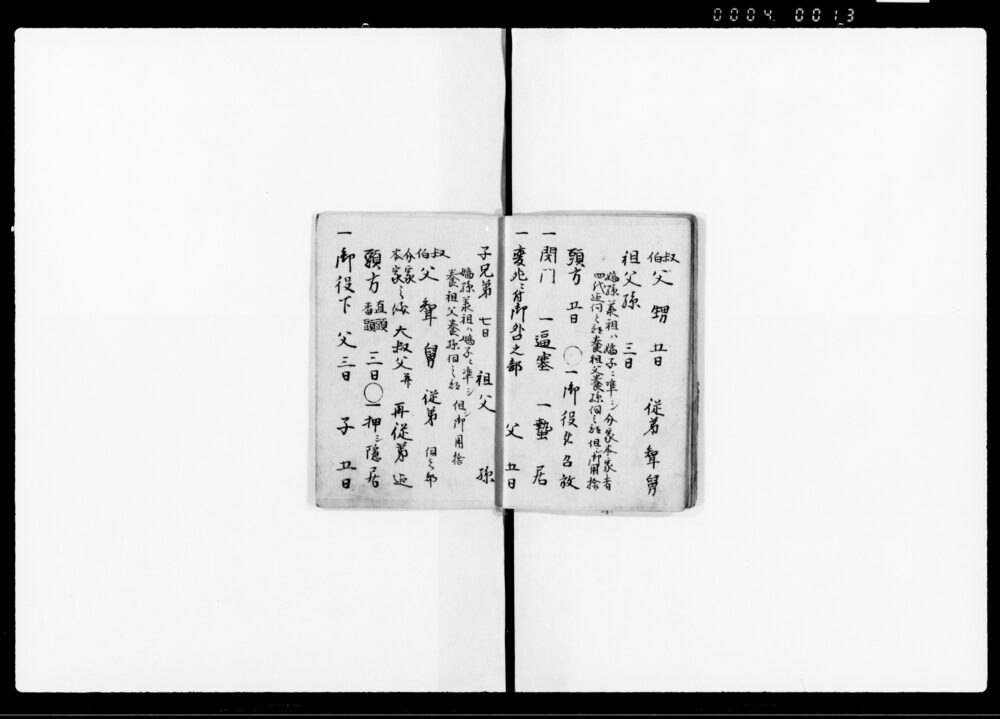 0004 0013
叔伯父 甥 五日 従弟 聟 舅
祖父孫 三日
嫡孫義祖ハ嫡子ニ準シ分家本家者
四代迄何之続養祖父養孫伺之続但御用捨
頭方 五日 〇一御役儀召放
一閉門 一逼塞 一蟄居
一変死ニ付御咎之部 父 五日
子兄弟 七日 祖父 孫
嫡孫義祖ハ嫡子ニ準シ 但御用捨
養祖父養孫伺之続
叔伯父 聟 舅 従弟 伺之部
分家本家之続 大叔父并 再従弟迄
頭方 直頭番頭 三日〇一押シ隠居
一御役下 父 三日 子 五日